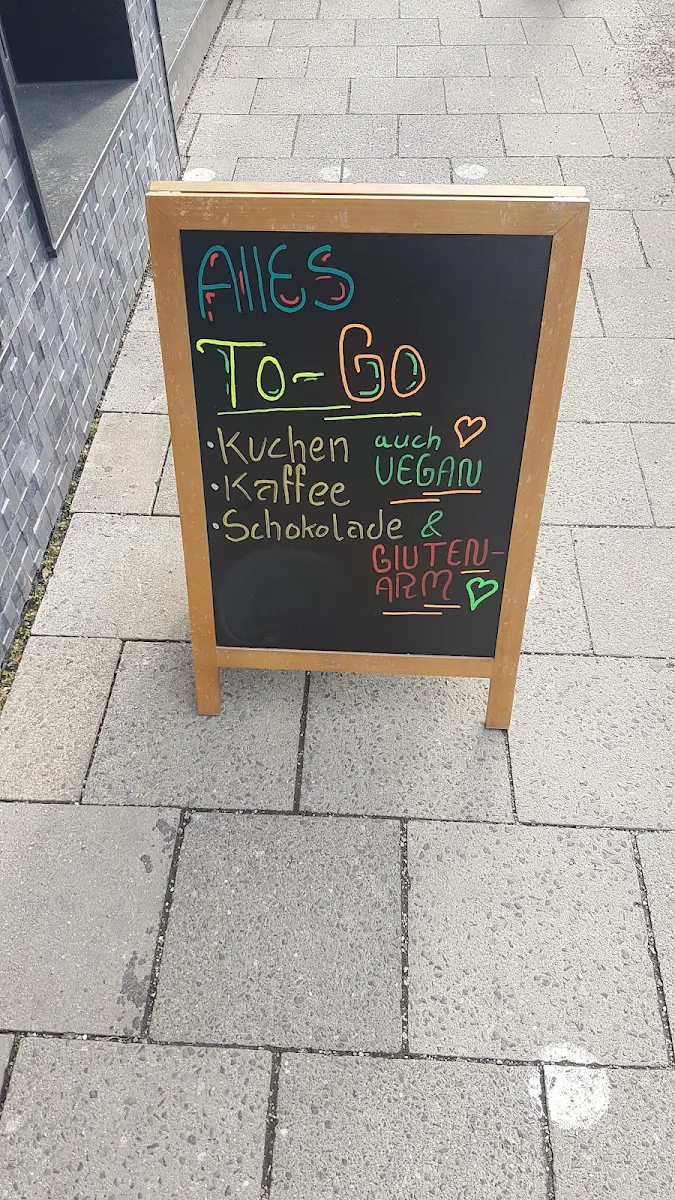 AllES
To-Go
• Kuchen auch
• Kaffee VEGAN
• Schokolade &
GlUTEN-
ARM